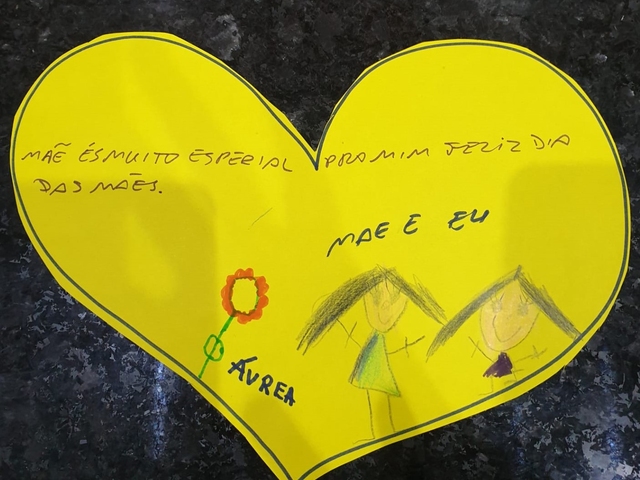 MÃE ÉS MUITO ESPERIAL PRA MIM FELIZ DIA
DAS MÃES.
MAE E EU
ÁUREA